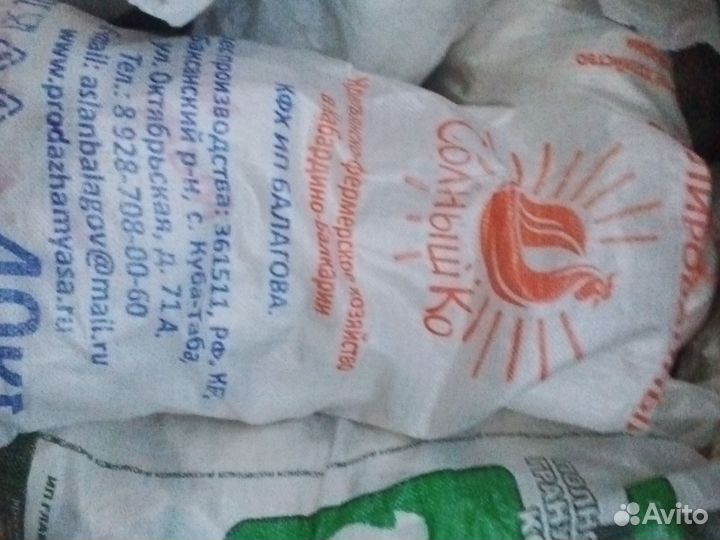 СОЛНЫШКО
Крестьянско-фермерское хозяйство
Кабардино-Балкарии
КФХ ИП БАЛАГОВА.
производства: 361511, РФ, КБР,
Баксанский р-н, с. Куба-Таба,
ул. Октябрьская, д. 71.А.
Тел.: 8 928-708-00-60
mail: aslanbalagov@mail.ru
www.prodazhamyasa.ru
40кг
ИП ГЛАВ
ПОЛН
ГРАНУ
КО
Avito